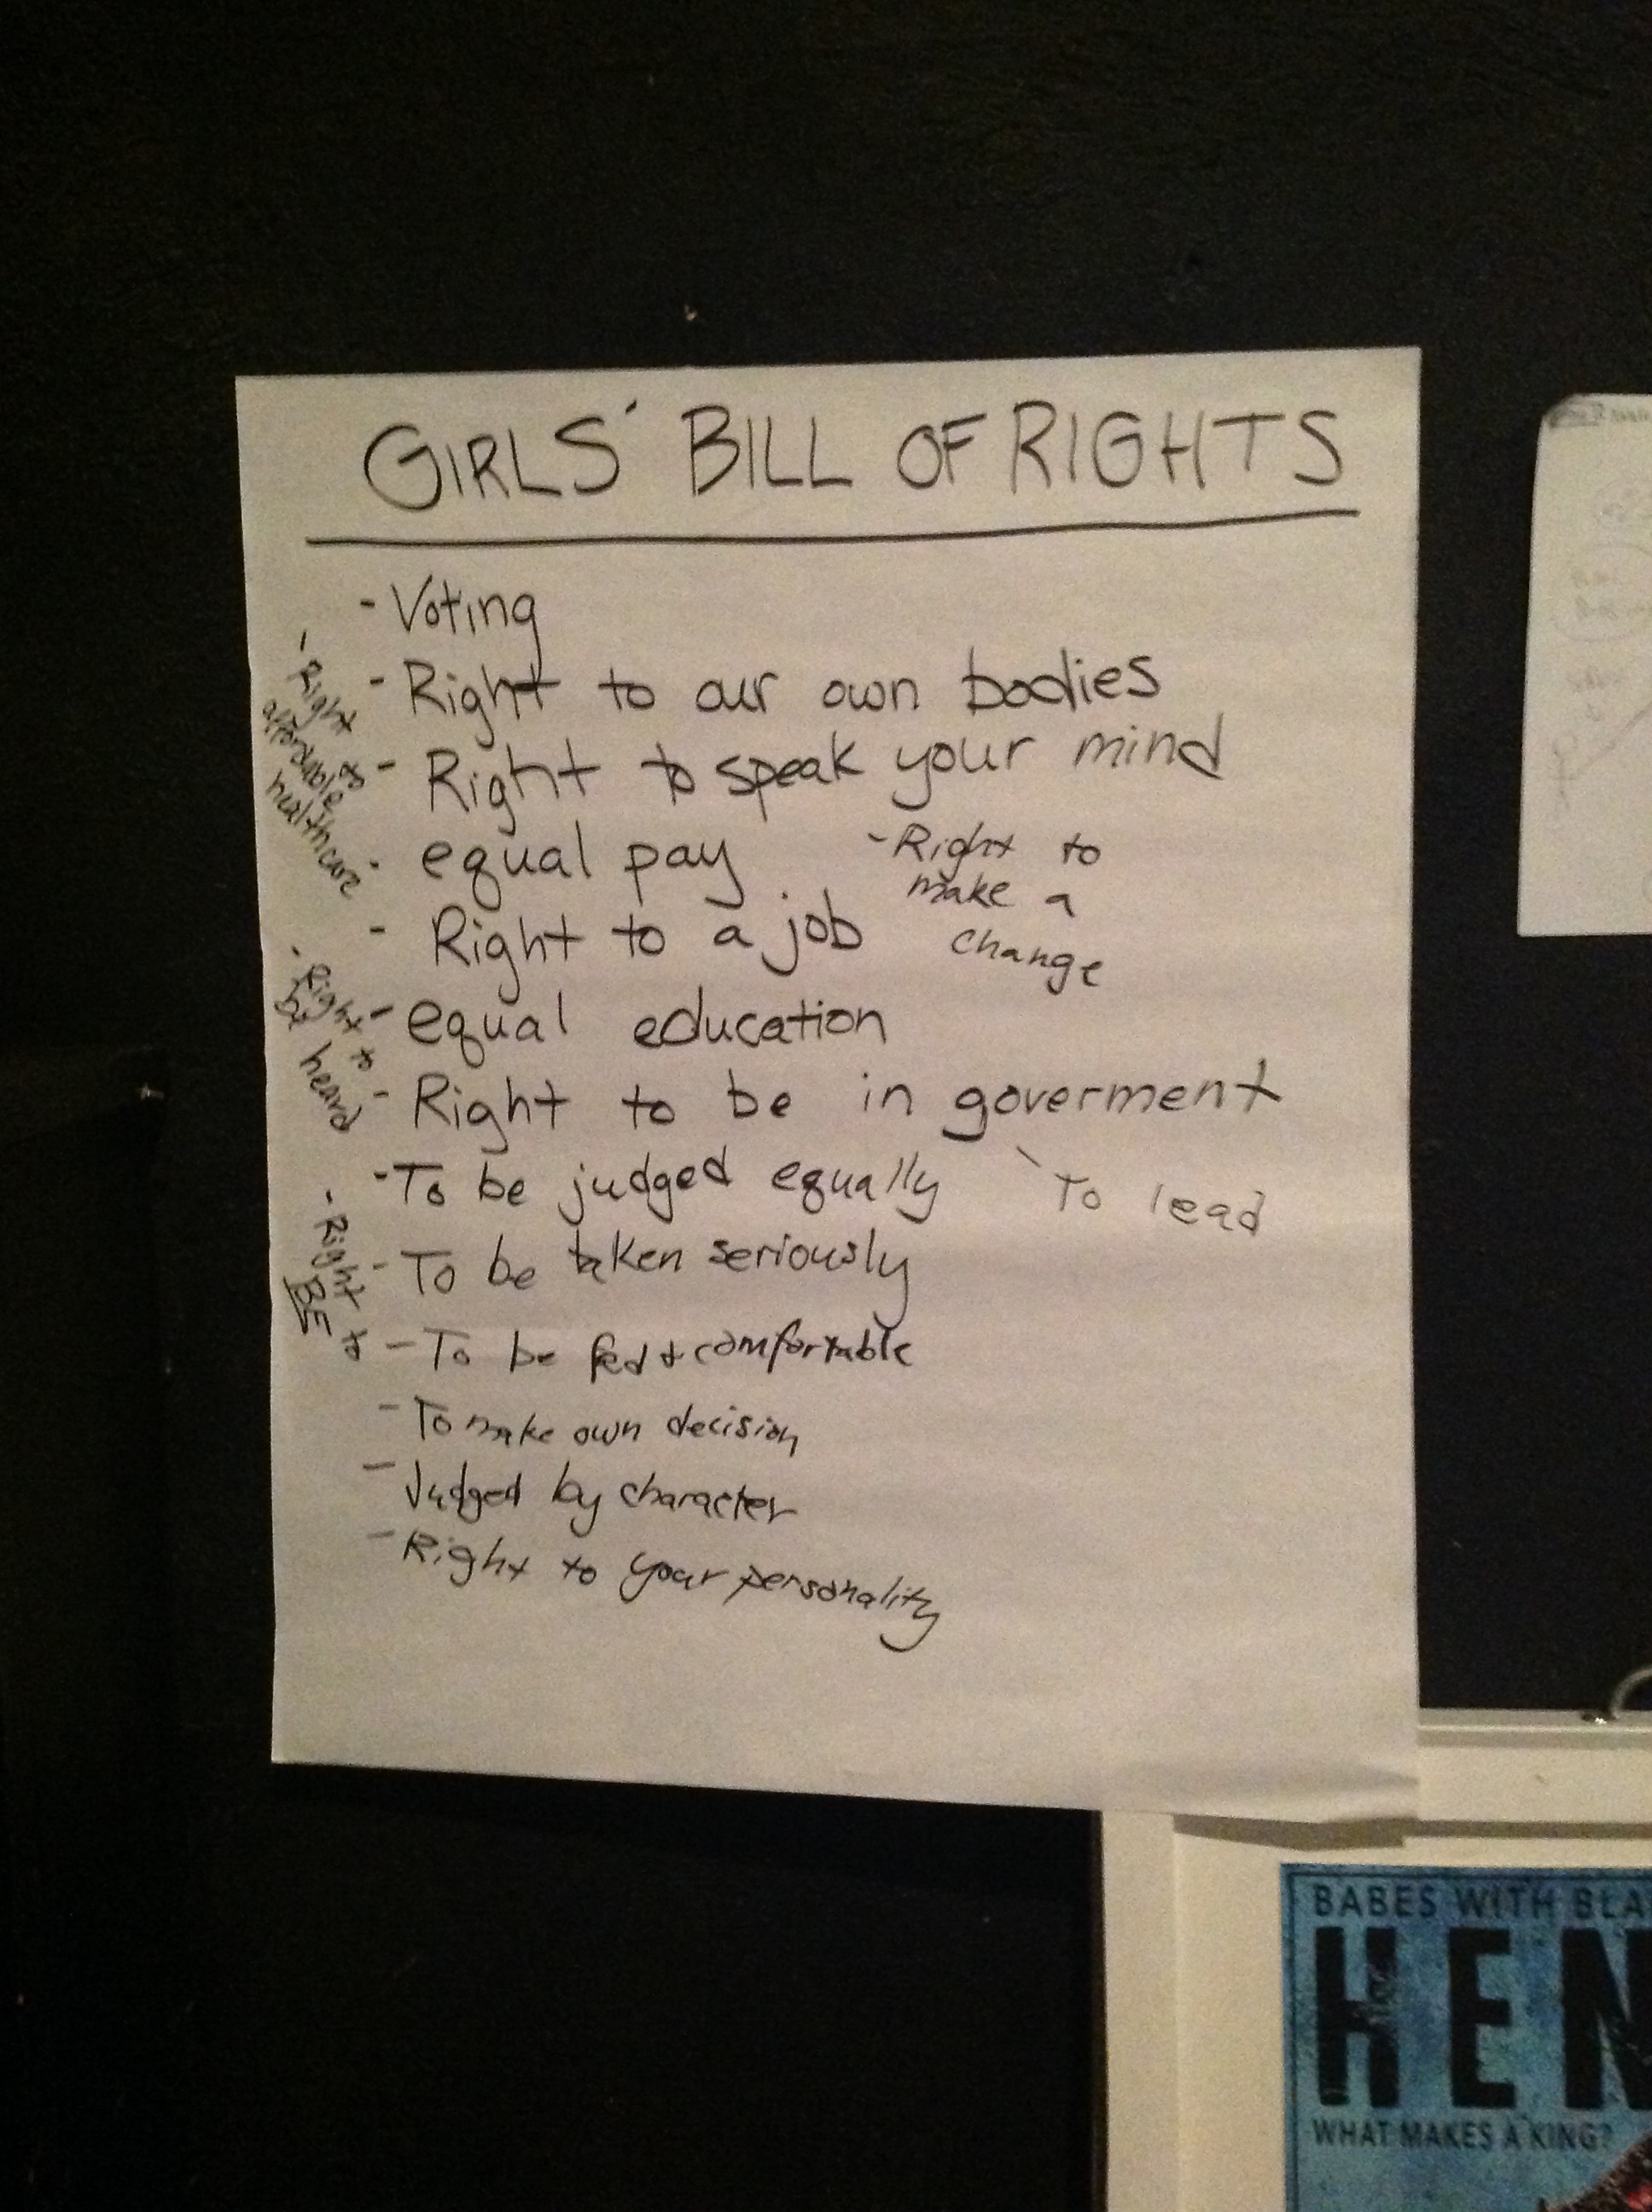 GIRLS' BILL OF RIGHTS
- Voting
- Right to our own bodies
- Right to speak your mind
- equal pay
- Right to a job
- Right to
make a
change
- equal education
- Right to be in goverment
- To be judged equally
- To lead
- To be taken seriously
- To be fed + comfortable
- To make own decision
- Judged by character
- Right to your personality
- Right to
affordable
healthcare
- Right to
be heard
- Right to
BE
BABES WITH BLA
HEN
WHAT MAKES A KING?